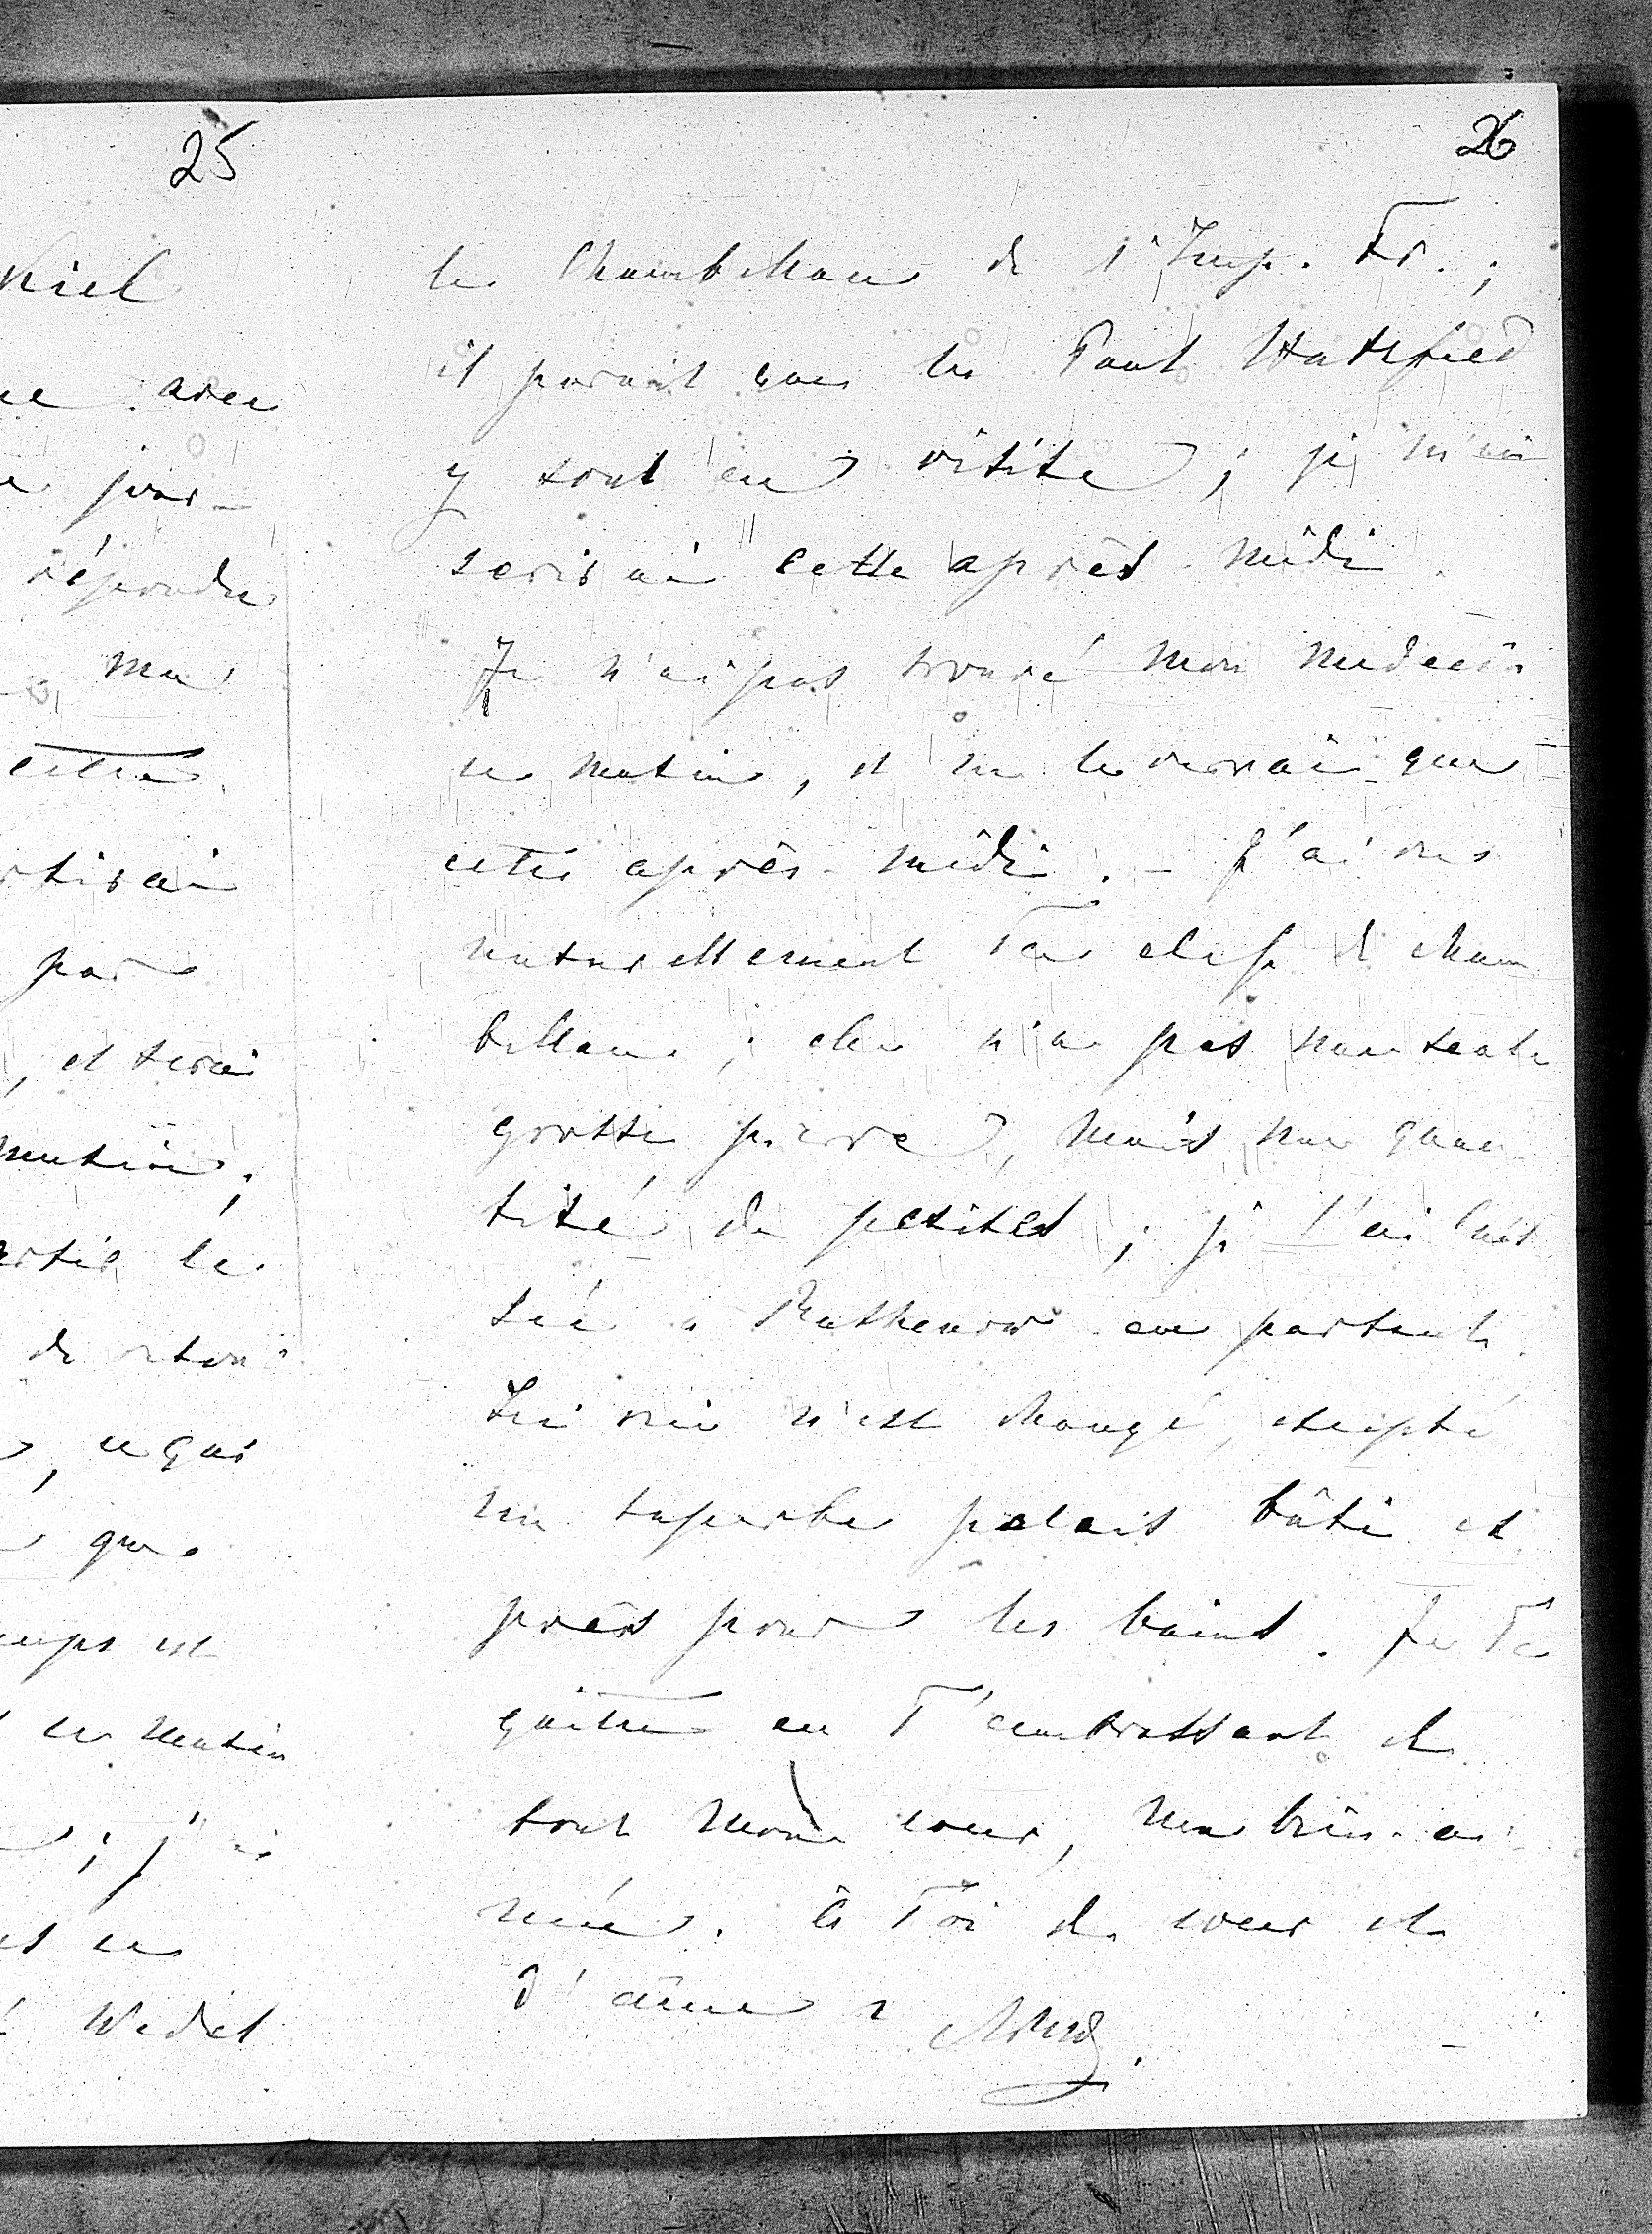 25
Kiel
avec
jour-
répondu
ma
cette
rtirai
par
, et serai
matin ;
artir le
de retour
, ce qui
que
temps est
ce matin
; j'ai
Wedel
26
le Chambellan de l'Imp. Fr. ;
il paraît que les Paul Hatzfeld
y sont en visite ; je m'in
scrirai cette après midi.
Je n'ai pas trouvé mon médecin
ce matin, et ne le verrai que
cette après-midi. - J'ai
naturellement Ta clef de cham
bellan ; elle n'a pas une seule
grosse pierre, mais une quan
tité de petites ; je l'ai lais
sée à Rathenow en partant.
Ici rien n'est changé, excepté
un superbe palais bâti ex
près pour les bains. Je Te
quitte en T'embrassant de
tout mon cœur, ma bien-ai
mée. à Toi de cœur et
d'âme